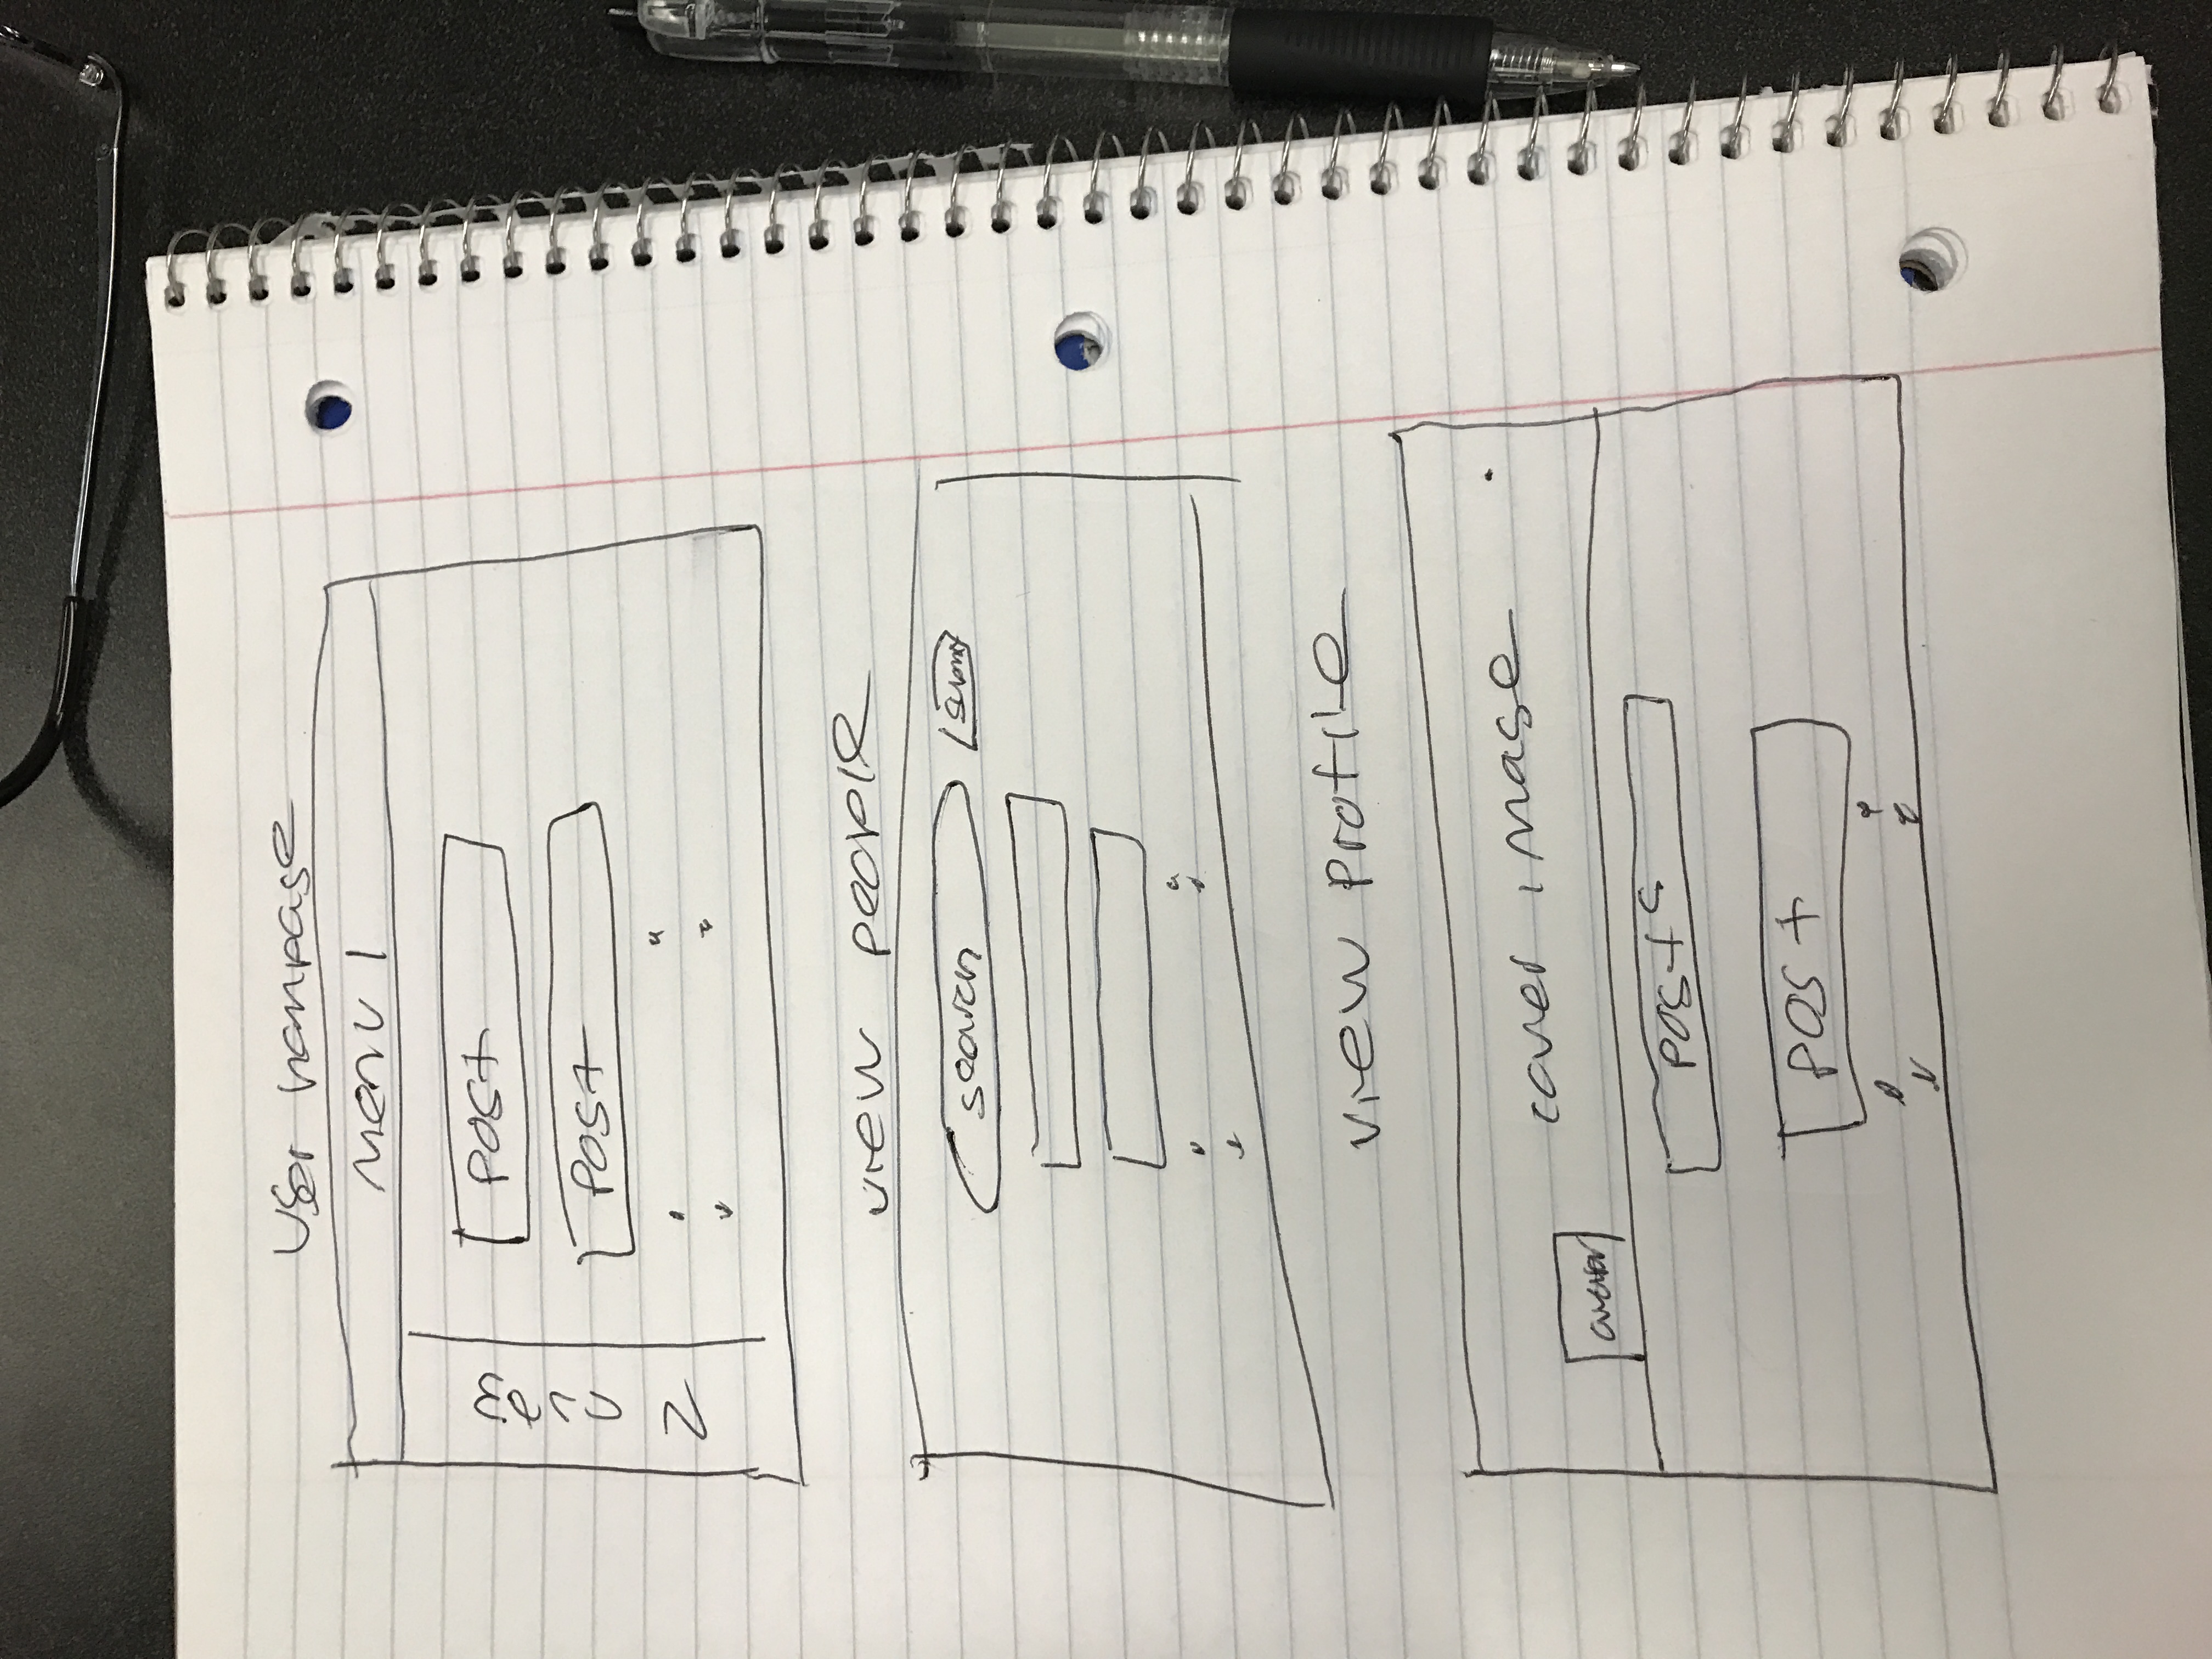 User hompage
Menu 1
Menu 2
Post
Post
view people
search
submit
view profile
cover image
avatar
posts
post